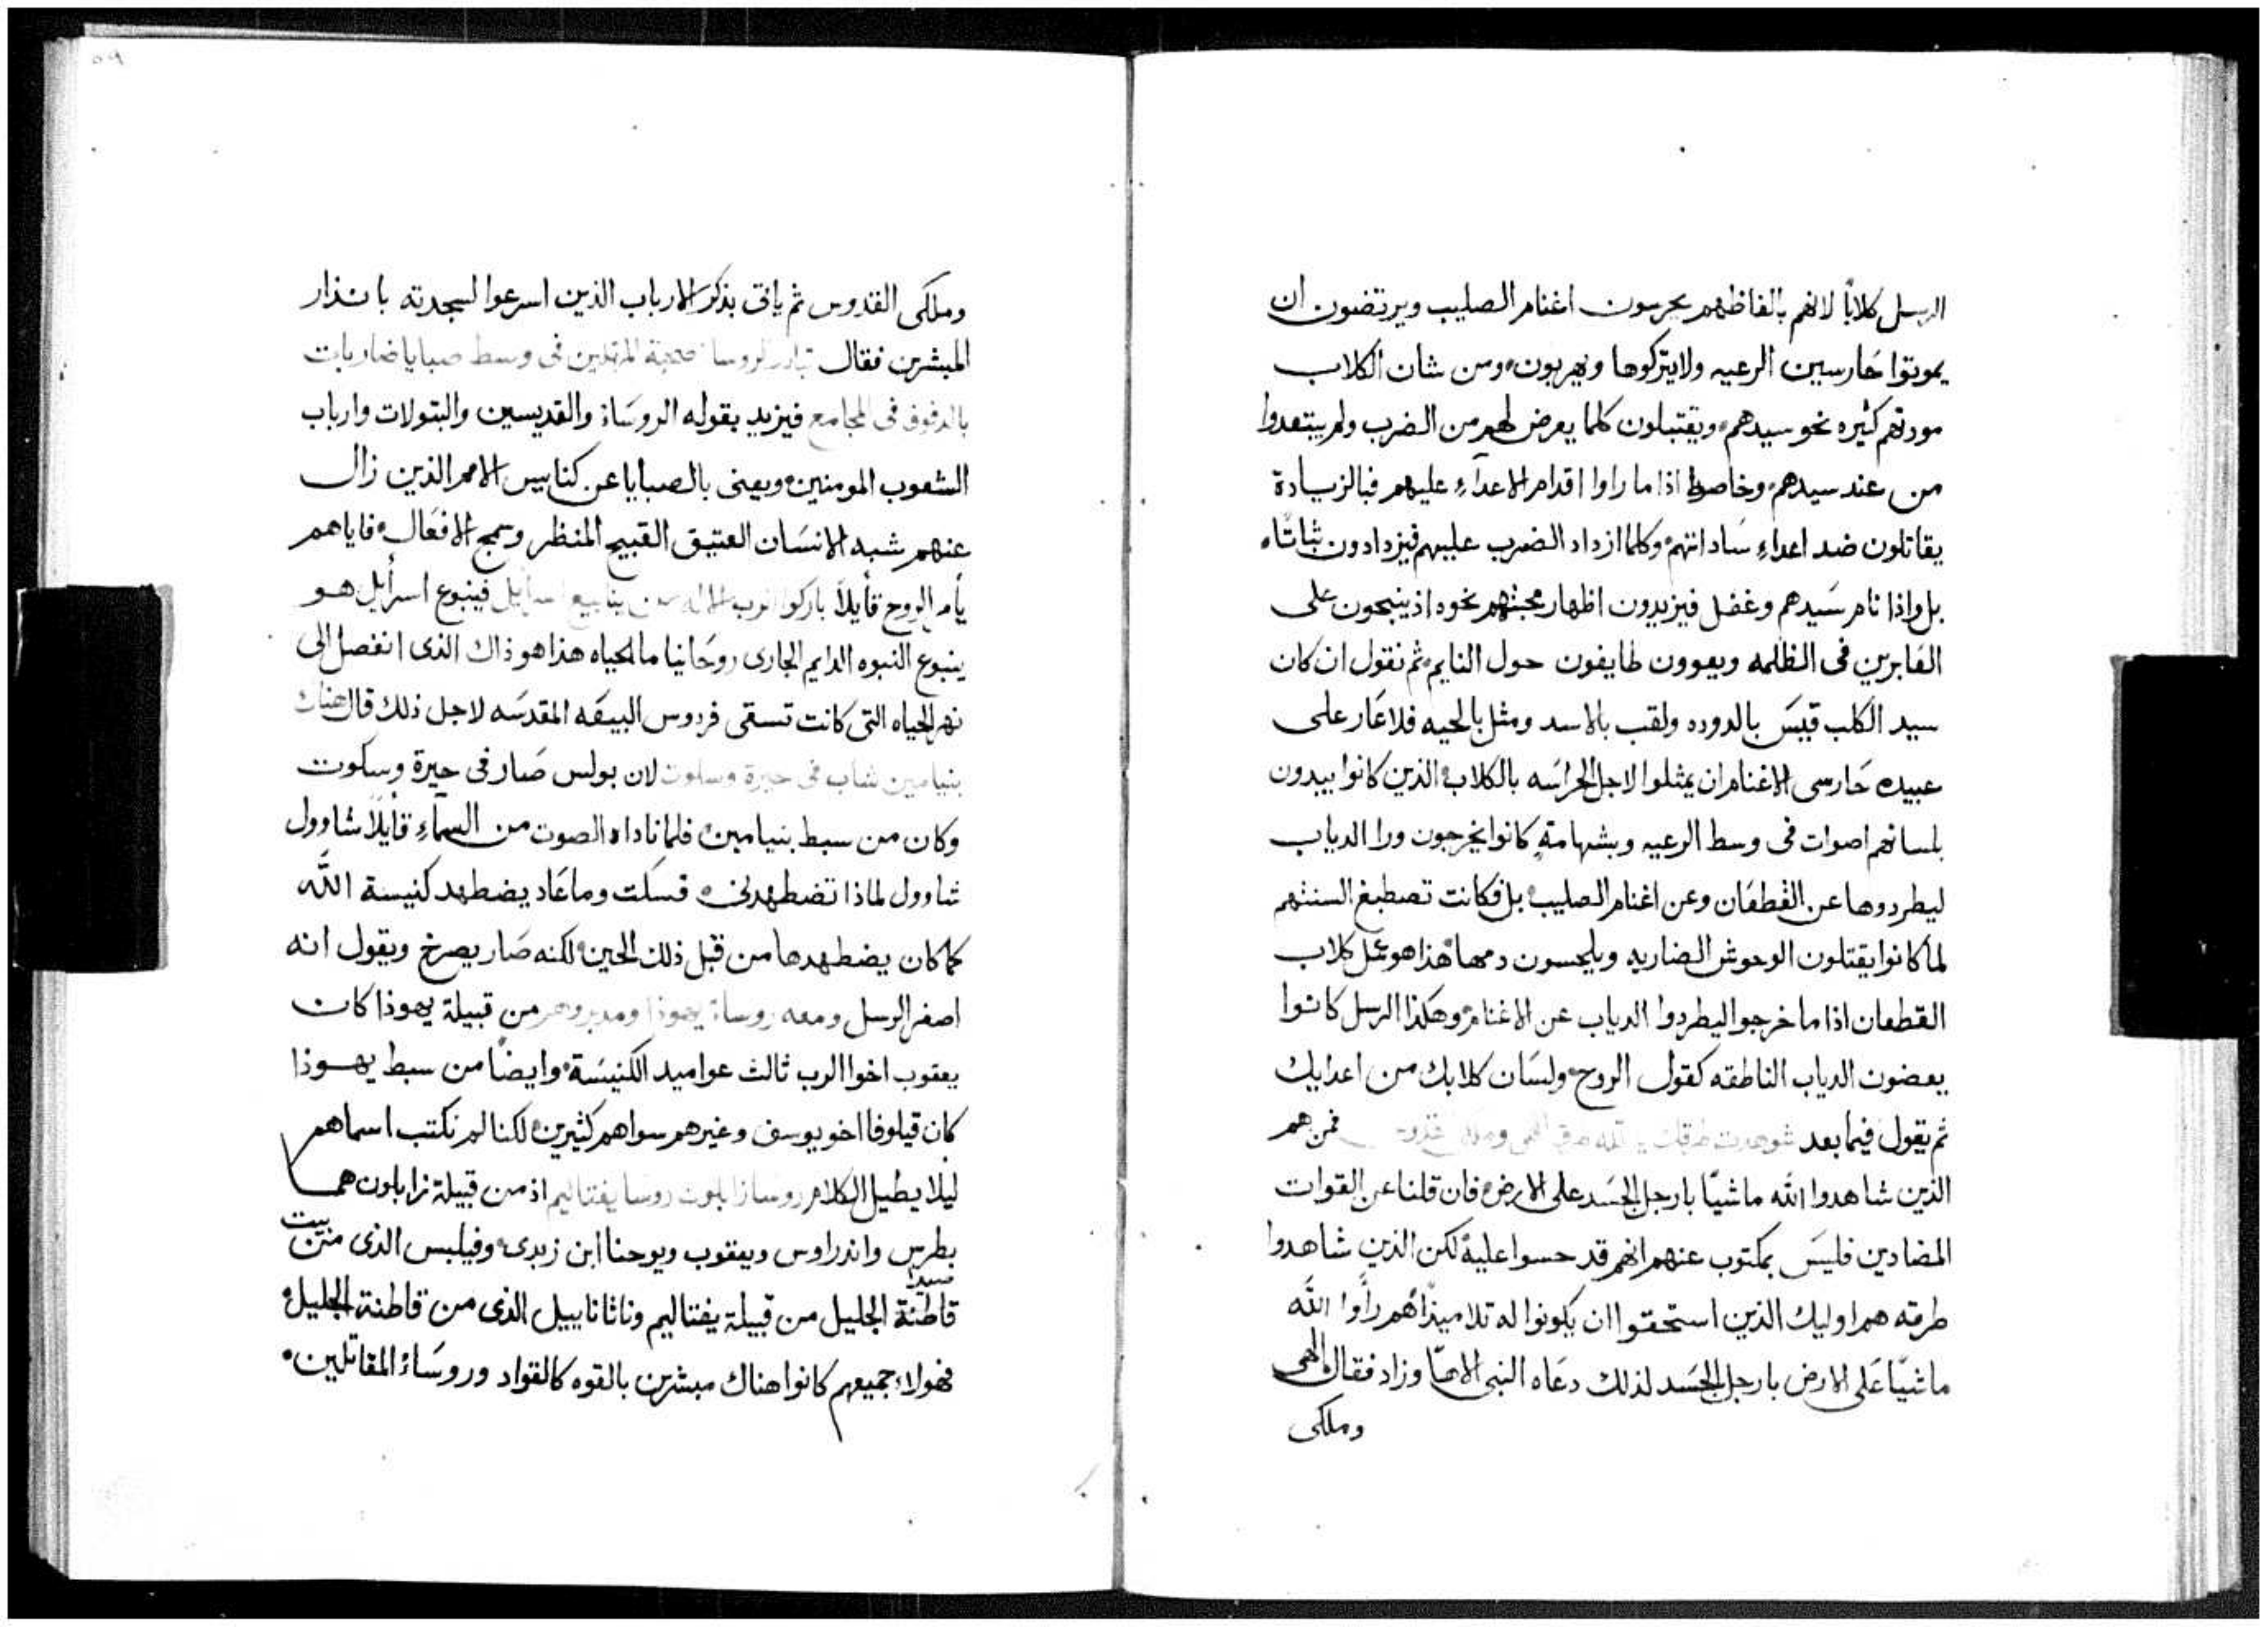 الرسل كلابًا لانهم بالفاظهم يحرسون اغنام الصليب ويرتضون ان
يموتوا حارسين الرعيه ولا يتركوها ويهربون ومن شان الكلاب
مودتهم كثيره نحو سيدهم ويقتبلون كلما يعرض لهم من الضرب ولم يبتعدوا
من عند سيدهم وخاصة اذا ما راوا اقدام الاعدآء عليهم فبالزيادة
يقاتلون ضد اعداء ساداتهم وكلما ازداد الضرب عليهم فيزدادون ثباتًا
بل واذا نام سيدهم وغفل فيزيدون اظهار محبتهم نحوه اذ ينبحون على
العابرين في الظلمه ويعوون طايفون حول النايم ثم نقول ان كان
سيد الكلب قيس بالدوده ولقب بالاسد ومثل بالحيه فلا عار على
عبيده حارسي الاغنام ان يمثلوا لاجل الحراسه بالكلاب الذين كانوا يبدون
بلسانهم اصوات في وسط الرعيه وبشهامةٍ كانوا يخرجون ورا الدياب
ليطردوها عن القطعان وعن اغنام الصليب بل فكانت تصطبغ السنتهم
لما كانوا يقتلون الوحوش الضاريه ويلحسون دمها هذا هو عمل كلاب
القطعان اذا ما خرجوا ليطردوا الدياب عن الاغنام وهكذا الرسل كانوا
يعضون الدياب الناطقه كقول الروح ولسان كلابك من اعدايك
ثم يقول فيما بعد شوهدت طرقك فمن هم
الذين شاهدوا الله ماشيًا بارجل الجسد على الارض فان قلنا عن القوات
المضادين فليس بمكتوب عنهم انهم قد حسوا عليه لكن الذين شاهدوا
طرقه هم اوليك الذين استحقوا ان يكونوا له تلاميذًا هم رأوا الله
ماشيًا على الارض بارجل الجسد لذلك دعاه النبي الاهًا وزاد فقال الهي
وملكي
وملكي القدوس ثم ياتي بذكر الارباب الذين اسرعوا لسجدته بانذار
المبشرين فقال تبادر الروسا صحبة المرتلين في وسط صبايا ضاربات
بالدفوف في المجامع فيزيد بقوله الروساء والقديسين والبتولات وارباب
الشعوب المومنين ويعني بالصبايا عن كنايس الامم الذين زال
عنهم شبه الانسان العتيق القبيح المنظر وسمج الافعال فاياهم
يأمر الروح قأيلاً باركوا الرب الاله من ينابيع اسرأيل فينبوع اسرأيل هو
ينبوع النبوه الدايم الجاري روحانيا ما الحياه هذا هو ذاك الذي انفصل الى
نهر الحياه التي كانت تسقي فردوس البيعه المقدسه لاجل ذلك قال هناك
بنيامين شاب في حيرة وسكوت لان بولس صار في حيرة وسكوت
وكان من سبط بنيامين فلما ناداه الصوت من السمآء قأيلاً شاوول
شاوول لماذا تضطهدني فسكت وما عاد يضطهد كنيسة الله
كما كان يضطهدها من قبل ذلك الحين لكنه صار يصرخ ويقول انه
اصغر الرسل ومعه روساء يهوذا ومدبروهم من قبيلة يهوذا كان
يعقوب اخوا الرب ثالث عواميد الكنيسة وايضًا من سبط يهوذا
كان قيلوفا اخو يوسف وغيرهم سواهم كثيرين لكنا لم نكتب اسماهم
ليلا يطيل الكلام روسا زابلون روسا يفتاليم اذ من قبيلة زابلون هما
بطرس واندراوس ويعقوب ويوحنا ابن زبدى وفيلبس الذي من بيت
صيدا
قاطنة الجليل من قبيلة يفتاليم وناثانابيل الذي من قاطنة الجليل
فهولاء جميعهم كانوا هناك مبشرين بالقوه كالقواد وروساء المقاتلين